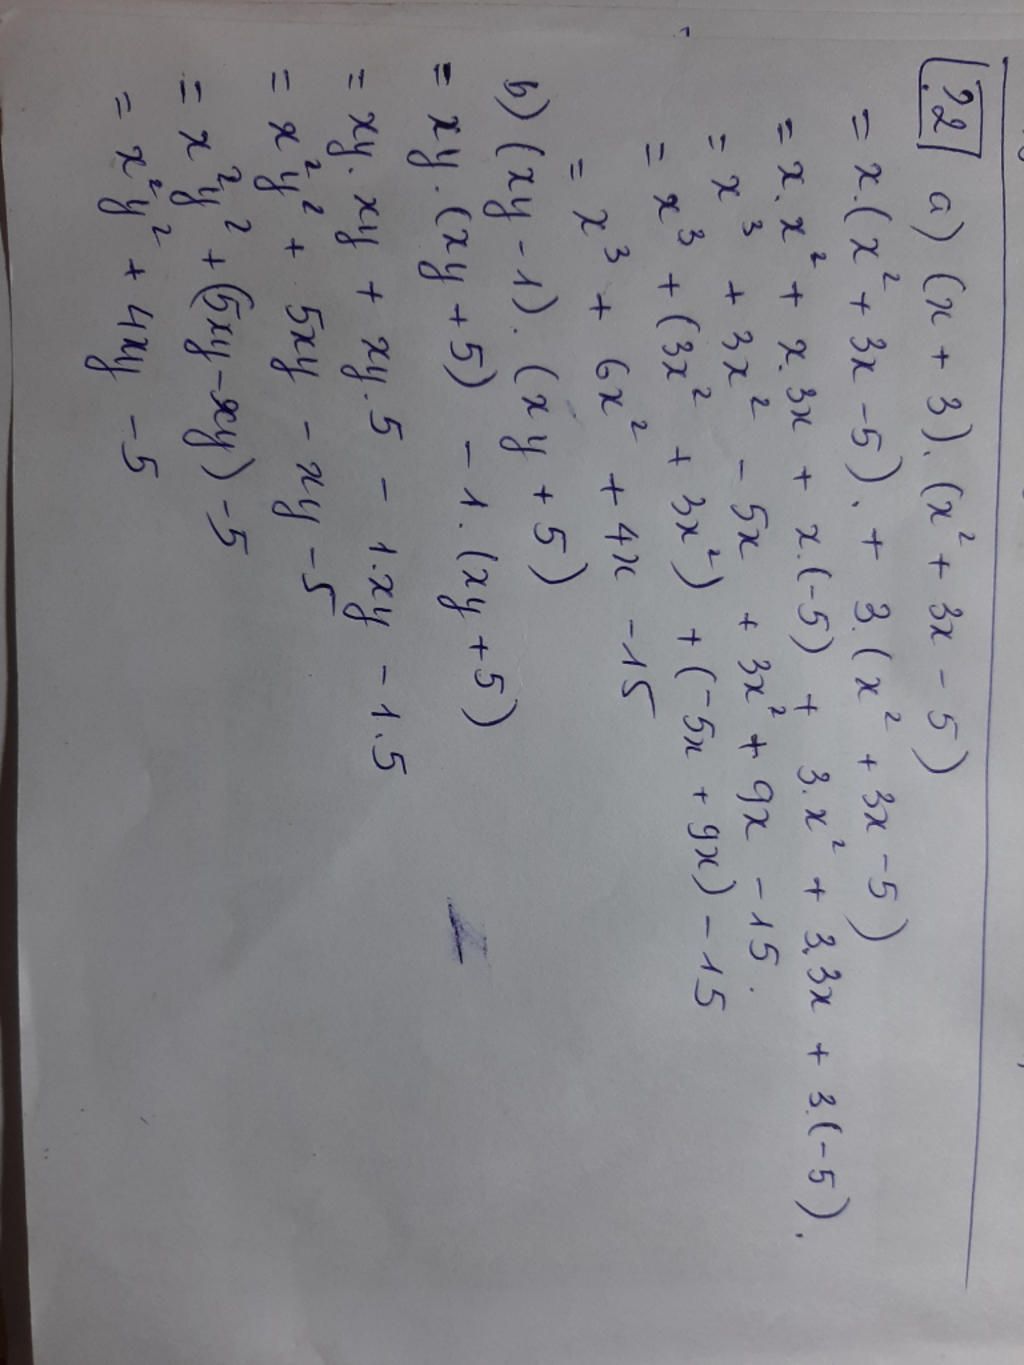 ?2 a) (x + 3).(x² + 3x - 5)
= x.(x² + 3x - 5). + 3.(x² + 3x - 5)
= x.x² + x.3x + x.(-5) + 3.x² + 3.3x + 3.(-5).
= x³ + 3x² - 5x + 3x² + 9x - 15.
= x³ + (3x² + 3x²) + (-5x + 9x) - 15
= x³ + 6x² + 4x - 15
b) (xy - 1).(xy + 5)
= xy.(xy + 5) - 1.(xy + 5)
= xy.xy + xy.5 - 1.xy - 1.5
= x²y² + 5xy - xy - 5
= x²y² + (5xy - xy) - 5
= x²y² + 4xy - 5